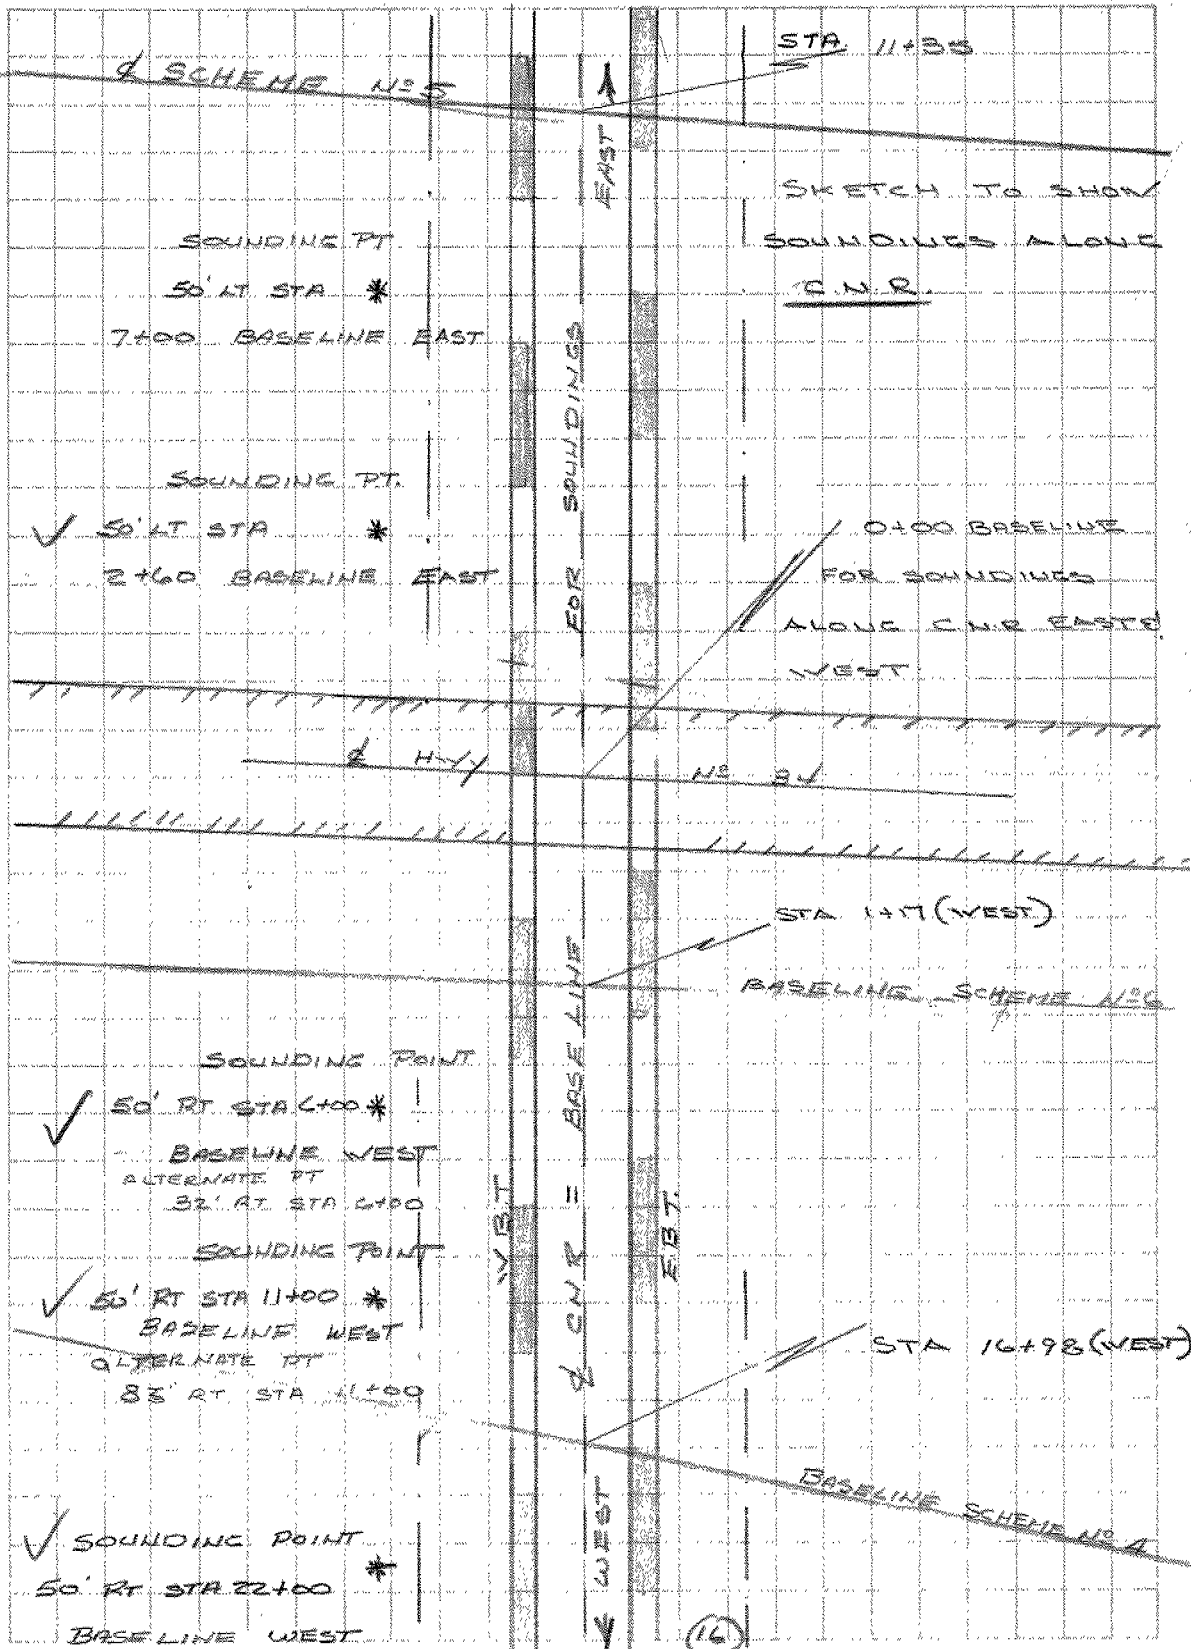 STA. 11+35
℄ SCHEME Nº 5
EAST
SKETCH TO SHOW
SOUNDINGS ALONG
C.N.R.
SOUNDING PT
50' LT STA *
7+00 BASELINE EAST
SOUNDING PT.
✓ 50' LT STA *
2+60 BASELINE EAST
0+00 BASELINE
FOR SOUNDINGS
ALONG C.N.R EAST &
WEST
℄ HWY Nº
STA 1+17 (WEST)
BASELINE SCHEME Nº 6
℄ CNR = BASE LINE FOR SOUNDINGS
SOUNDING POINT
✓ 50' RT STA 6+00 *
BASELINE WEST
ALTERNATE PT
32' RT STA 6+00
W.B.T
E.B.T.
SOUNDING POINT
✓ 50' RT STA 11+00 *
BASELINE WEST
ALTERNATE PT
83' RT STA 11+00
STA 16+98 (WEST)
BASELINE SCHEME Nº 4
✓ SOUNDING POINT
50' RT STA 22+00 *
BASELINE WEST
WEST
16